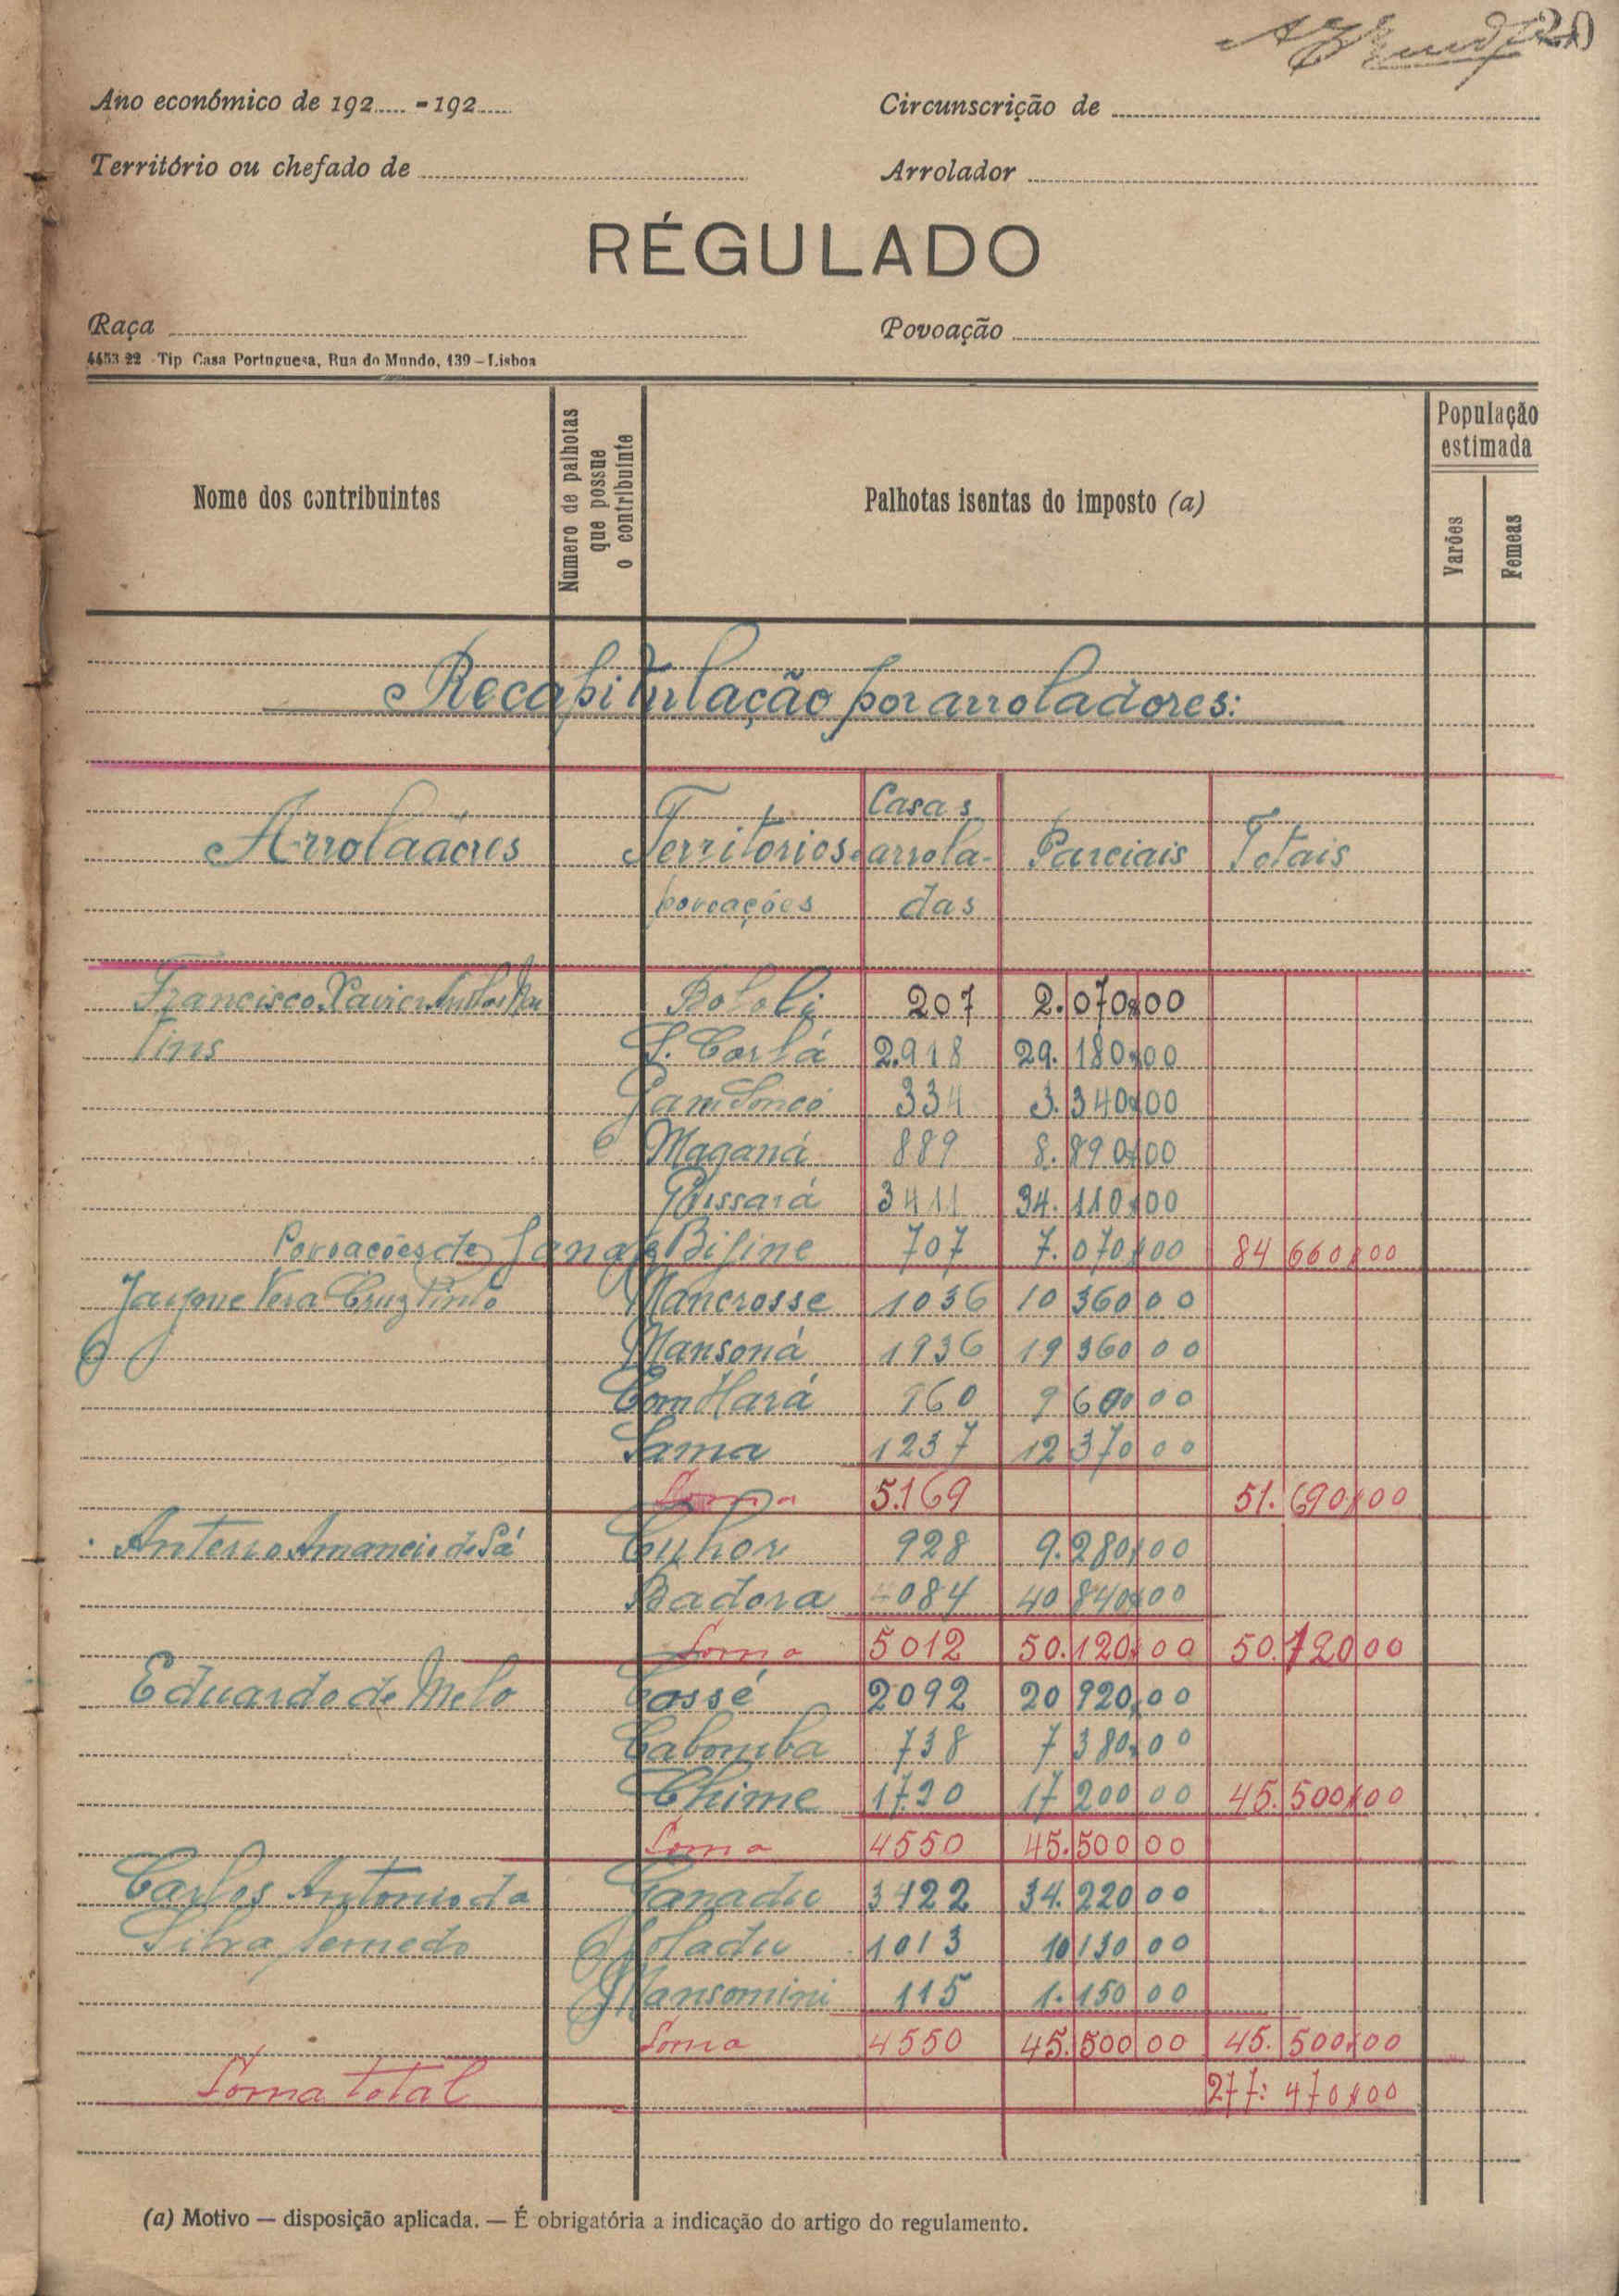 20
Ano económico de 192..... - 192.....
Circunscrição de
Território ou chefado de
Arrolador
RÉGULADO
Raça
Povoação
4453 22 Tip Casa Portuguesa, Rua do Mundo, 139 – Lisboa
Nome dos contribuintes
Numero de palhotas que possue o contribuinte
Palhotas isentas do imposto (a)
População estimada
Varões
Femeas
Recapitulação por arroladores:
Arroladores Territorios e povoações Casas arroladas Parciais Totais
Francisco Xavier 207 2.070$00
tins 2.918 29.180$00
334 3.340$00
Maganá 889 8.890$00
Gussará 3411 34.110$00
Povoações de Bijine 707 7.070$00 84 660$00
Jayme Vera Cruz Pinto Mancrosse 1036 10 360 00
Mansoná 1936 19 360 00
960 9 600 00
Sama 1237 12 370 00
Soma 5.169 51.690$00
Anterio Amancio de Sá Cuhor 928 9.280$00
Badora 4084 40 840$00
Soma 5012 50.120$00 50.120 00
Eduardo de Melo Cossé 2092 20 920,00
Cabomba 738 7 380,00
Chime 1720 17 200 00 45.500$00
Soma 4550 45.500 00
Carlos Antonio da Ganadu 3422 34.220 00
Silva Semedo Joladu 1013 10 130 00
Mansomini 115 1.150 00
Soma 4550 45.500 00 45.500$00
Soma total 277: 470$00
(a) Motivo — disposição aplicada. — É obrigatória a indicação do artigo do regulamento.